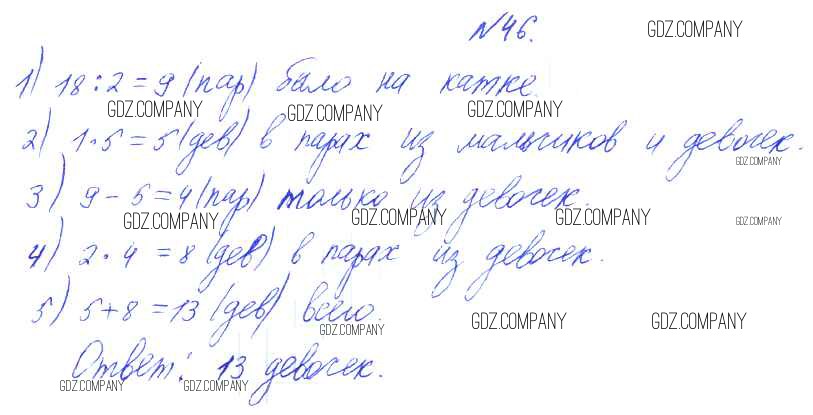 №46.
GDZ.COMPANY
1) 18:2=9 (пар) было на катке.
GDZ.COMPANY GDZ.COMPANY GDZ.COMPANY
2) 1·5=5 (дев) в парах из мальчиков и девочек.
GDZ.COMPANY
3) 9-5=4 (пар) только из девочек.
GDZ.COMPANY GDZ.COMPANY GDZ.COMPANY GDZ.COMPANY
4) 2·4=8 (дев) в парах из девочек.
5) 5+8=13 (дев) всего.
GDZ.COMPANY GDZ.COMPANY GDZ.COMPANY
Ответ: 13 девочек.
GDZ.COMPANY GDZ.COMPANY